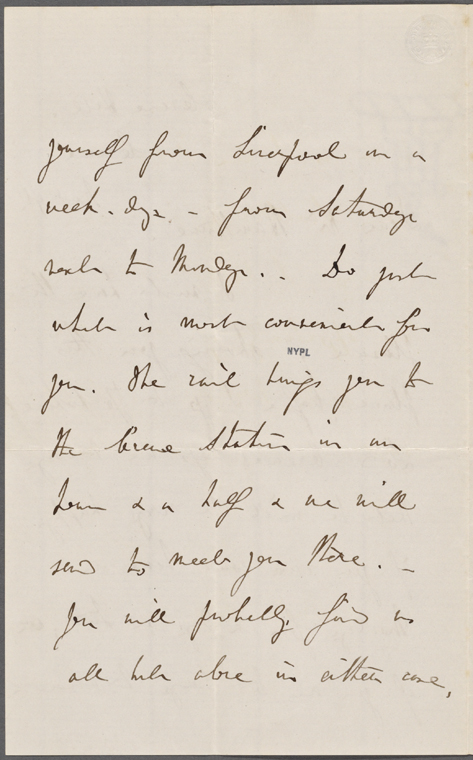 yourself from Liverpool on a
week-day - from Saturday
next to Monday. . Do just
what is most convenient for
NYPL
you. The rail brings you to
the Crewe Station in an
hour & a half & we will
send to meet you there. -
You will probably find us
all but alone in either case,